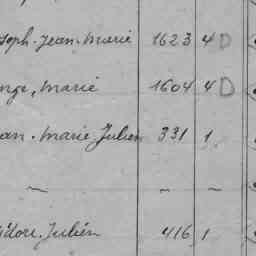 seph. Jean. Marie 1623 4 D
ange, Marie 1604 4 D
ean. Marie Julien 331 1
~ ~ ~
sidore. Julien 416 1